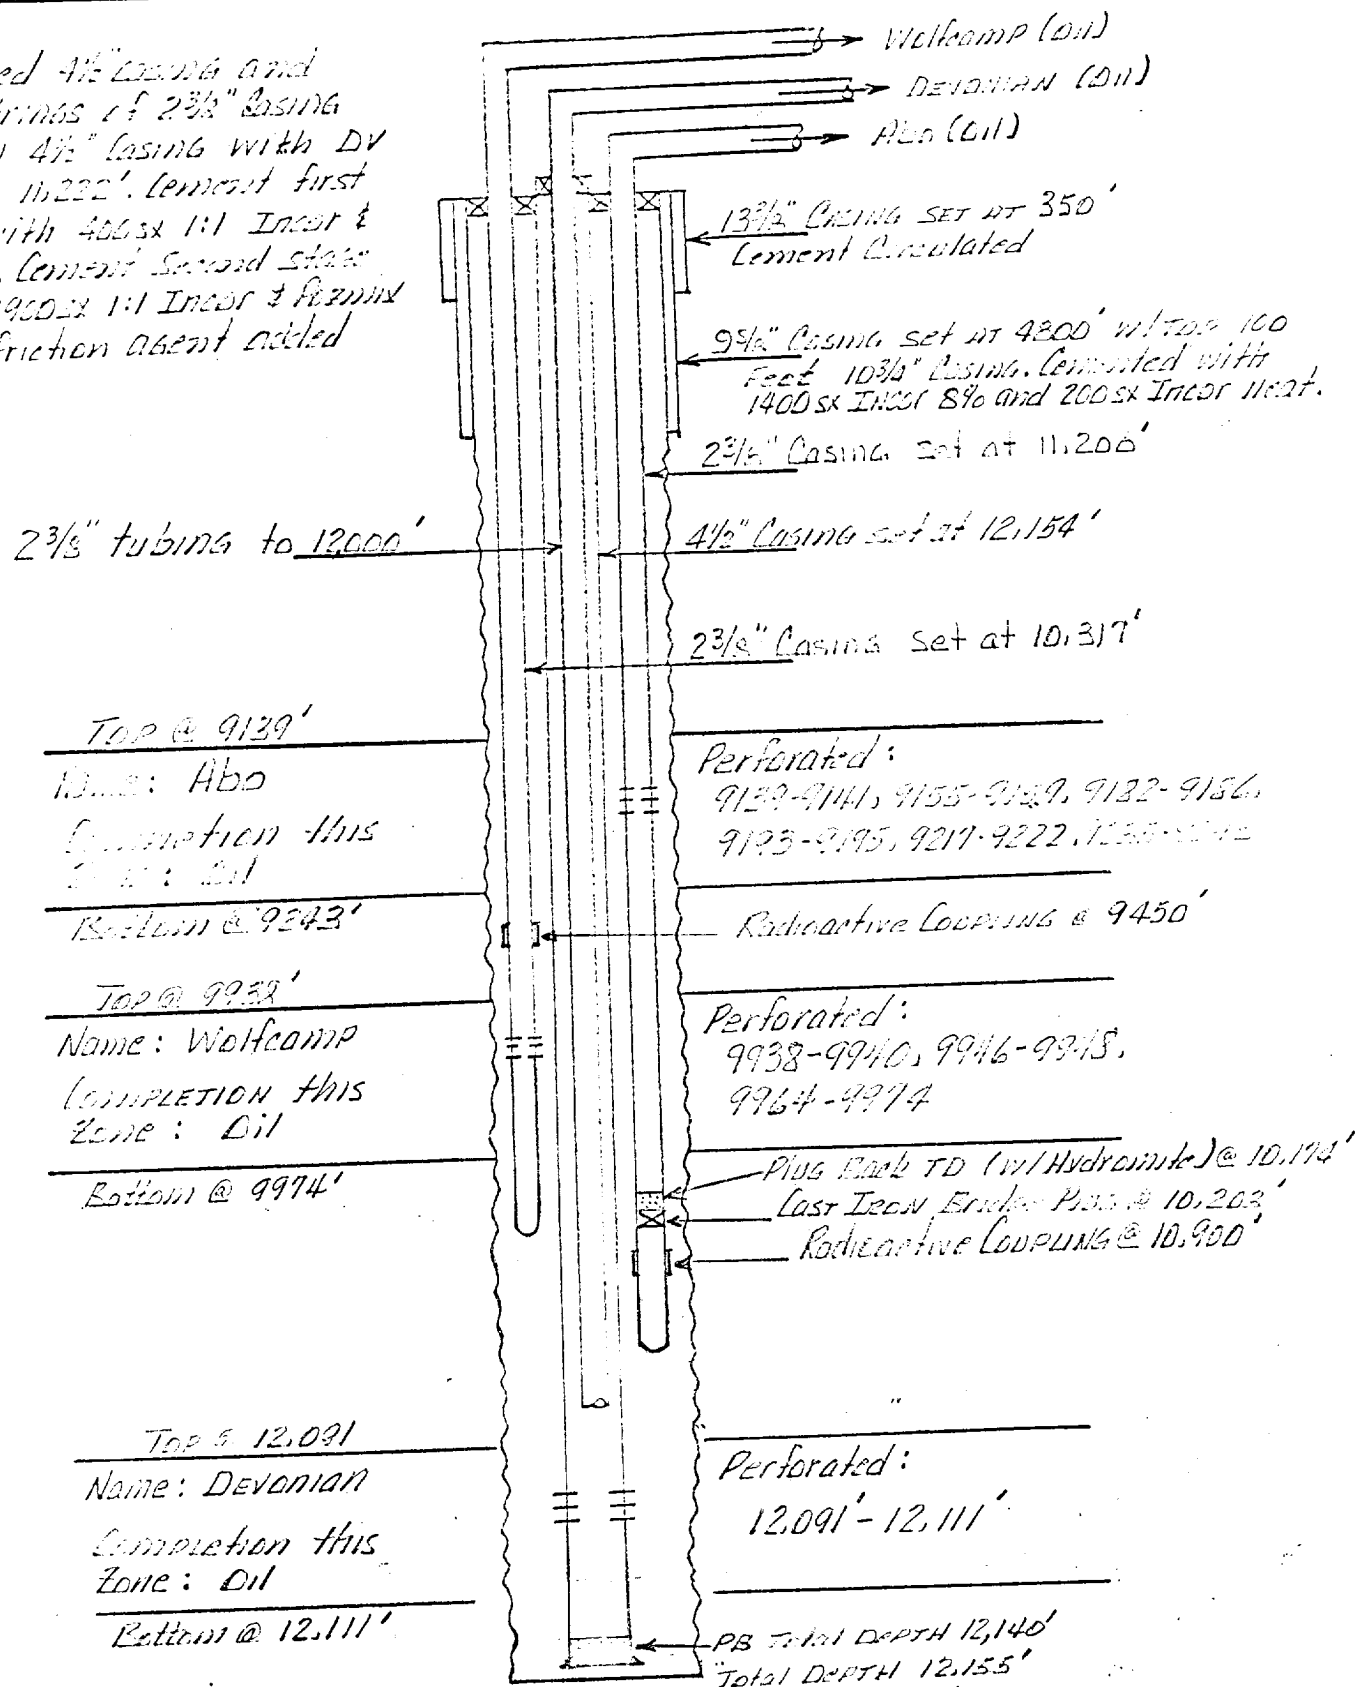 Wolfcamp (Oil)
Devonian (Oil)
Abo (Oil)
4½" Casing and
of 2⅜" Casing
4½" Casing with DV
11,222'. Cement first
with 400 sx 1:1 Incor &
Cement Second stage
900 sx 1:1 Incor & Pozmix
friction agent added
13⅜" Casing set at 350'
Cement Circulated
9⅝" Casing set at 4800' w/top 100
Feet 10¾" Casing. Cemented with
1400 sx Incor 8% and 200 sx Incor Neat.
2⅜" Casing set at 11,200'
2⅜" tubing to 12,000'
4½" Casing set at 12,154'
2⅜" Casing set at 10,317'
Top @ 9139'
Name: Abo
Completion this
Zone: Oil
Bottom @ 9243'
Perforated:
9139-9141, 9182-9186,
9193-9195, 9217-9222,
Radioactive Coupling @ 9450'
Top @ 9938'
Name: Wolfcamp
Completion this
Zone: Oil
Bottom @ 9974'
Perforated:
9938-9940, 9946-9948,
9964-9974
Plug Back TD (w/Hydromite) @ 10,174'
Cast Iron Bridge Plug @ 10,203'
Radioactive Coupling @ 10,900'
Top @ 12,091
Name: Devonian
Completion this
Zone: Oil
Bottom @ 12,111'
Perforated:
12,091'-12,111'
PB Total Depth 12,140'
Total Depth 12,155'